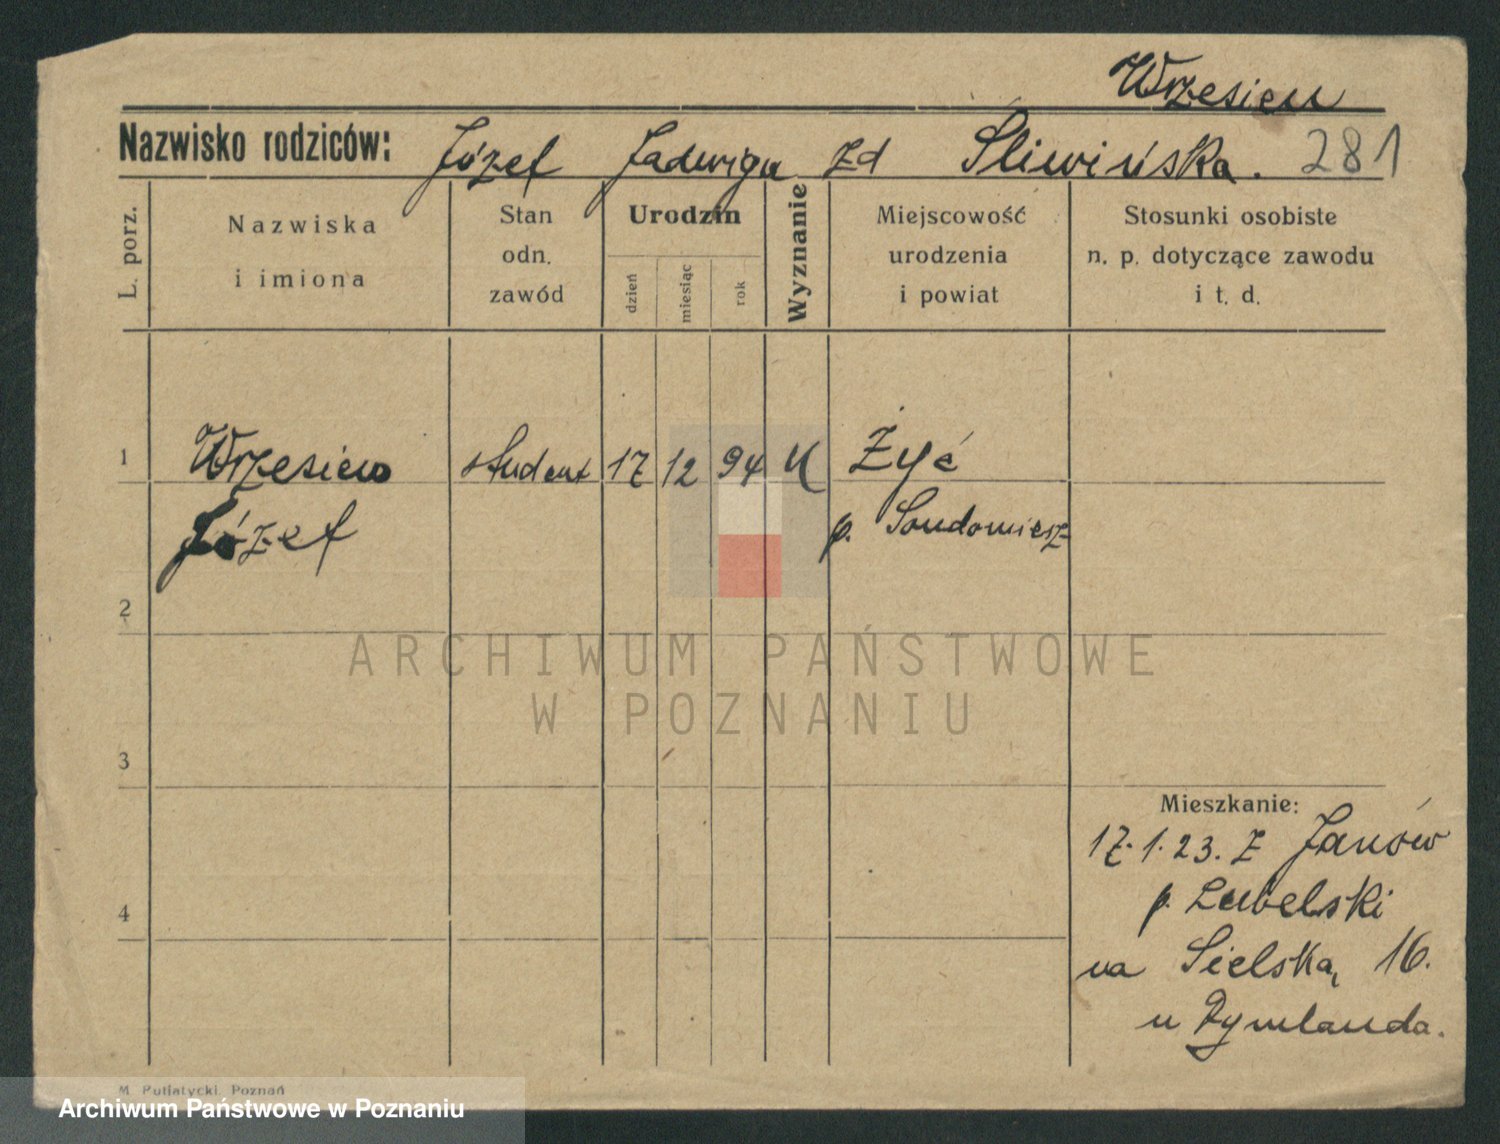 Wrzesień
Nazwisko rodziców: Józef Jadwiga zd Śliwińska. 281
L. porz.
Nazwiska
i imiona
Stan
odn.
zawód
Urodzin
dzień
miesiąc
rok
Wyznanie
Miejscowość
urodzenia
i powiat
Stosunki osobiste
n. p. dotyczące zawodu
i t. d.
1 Wrzesień student 17 12 94 K Żyć
Józef p. Sandomierz
2
ARCHIWUM PAŃSTWOWE
W POZNANIU
3
Mieszkanie:
17.1.23. z Janów
4 p. Lubelski
na Sielską 16.
u Rymlanda.
M. Putiatycki, Poznań
Archiwum Państwowe w Poznaniu